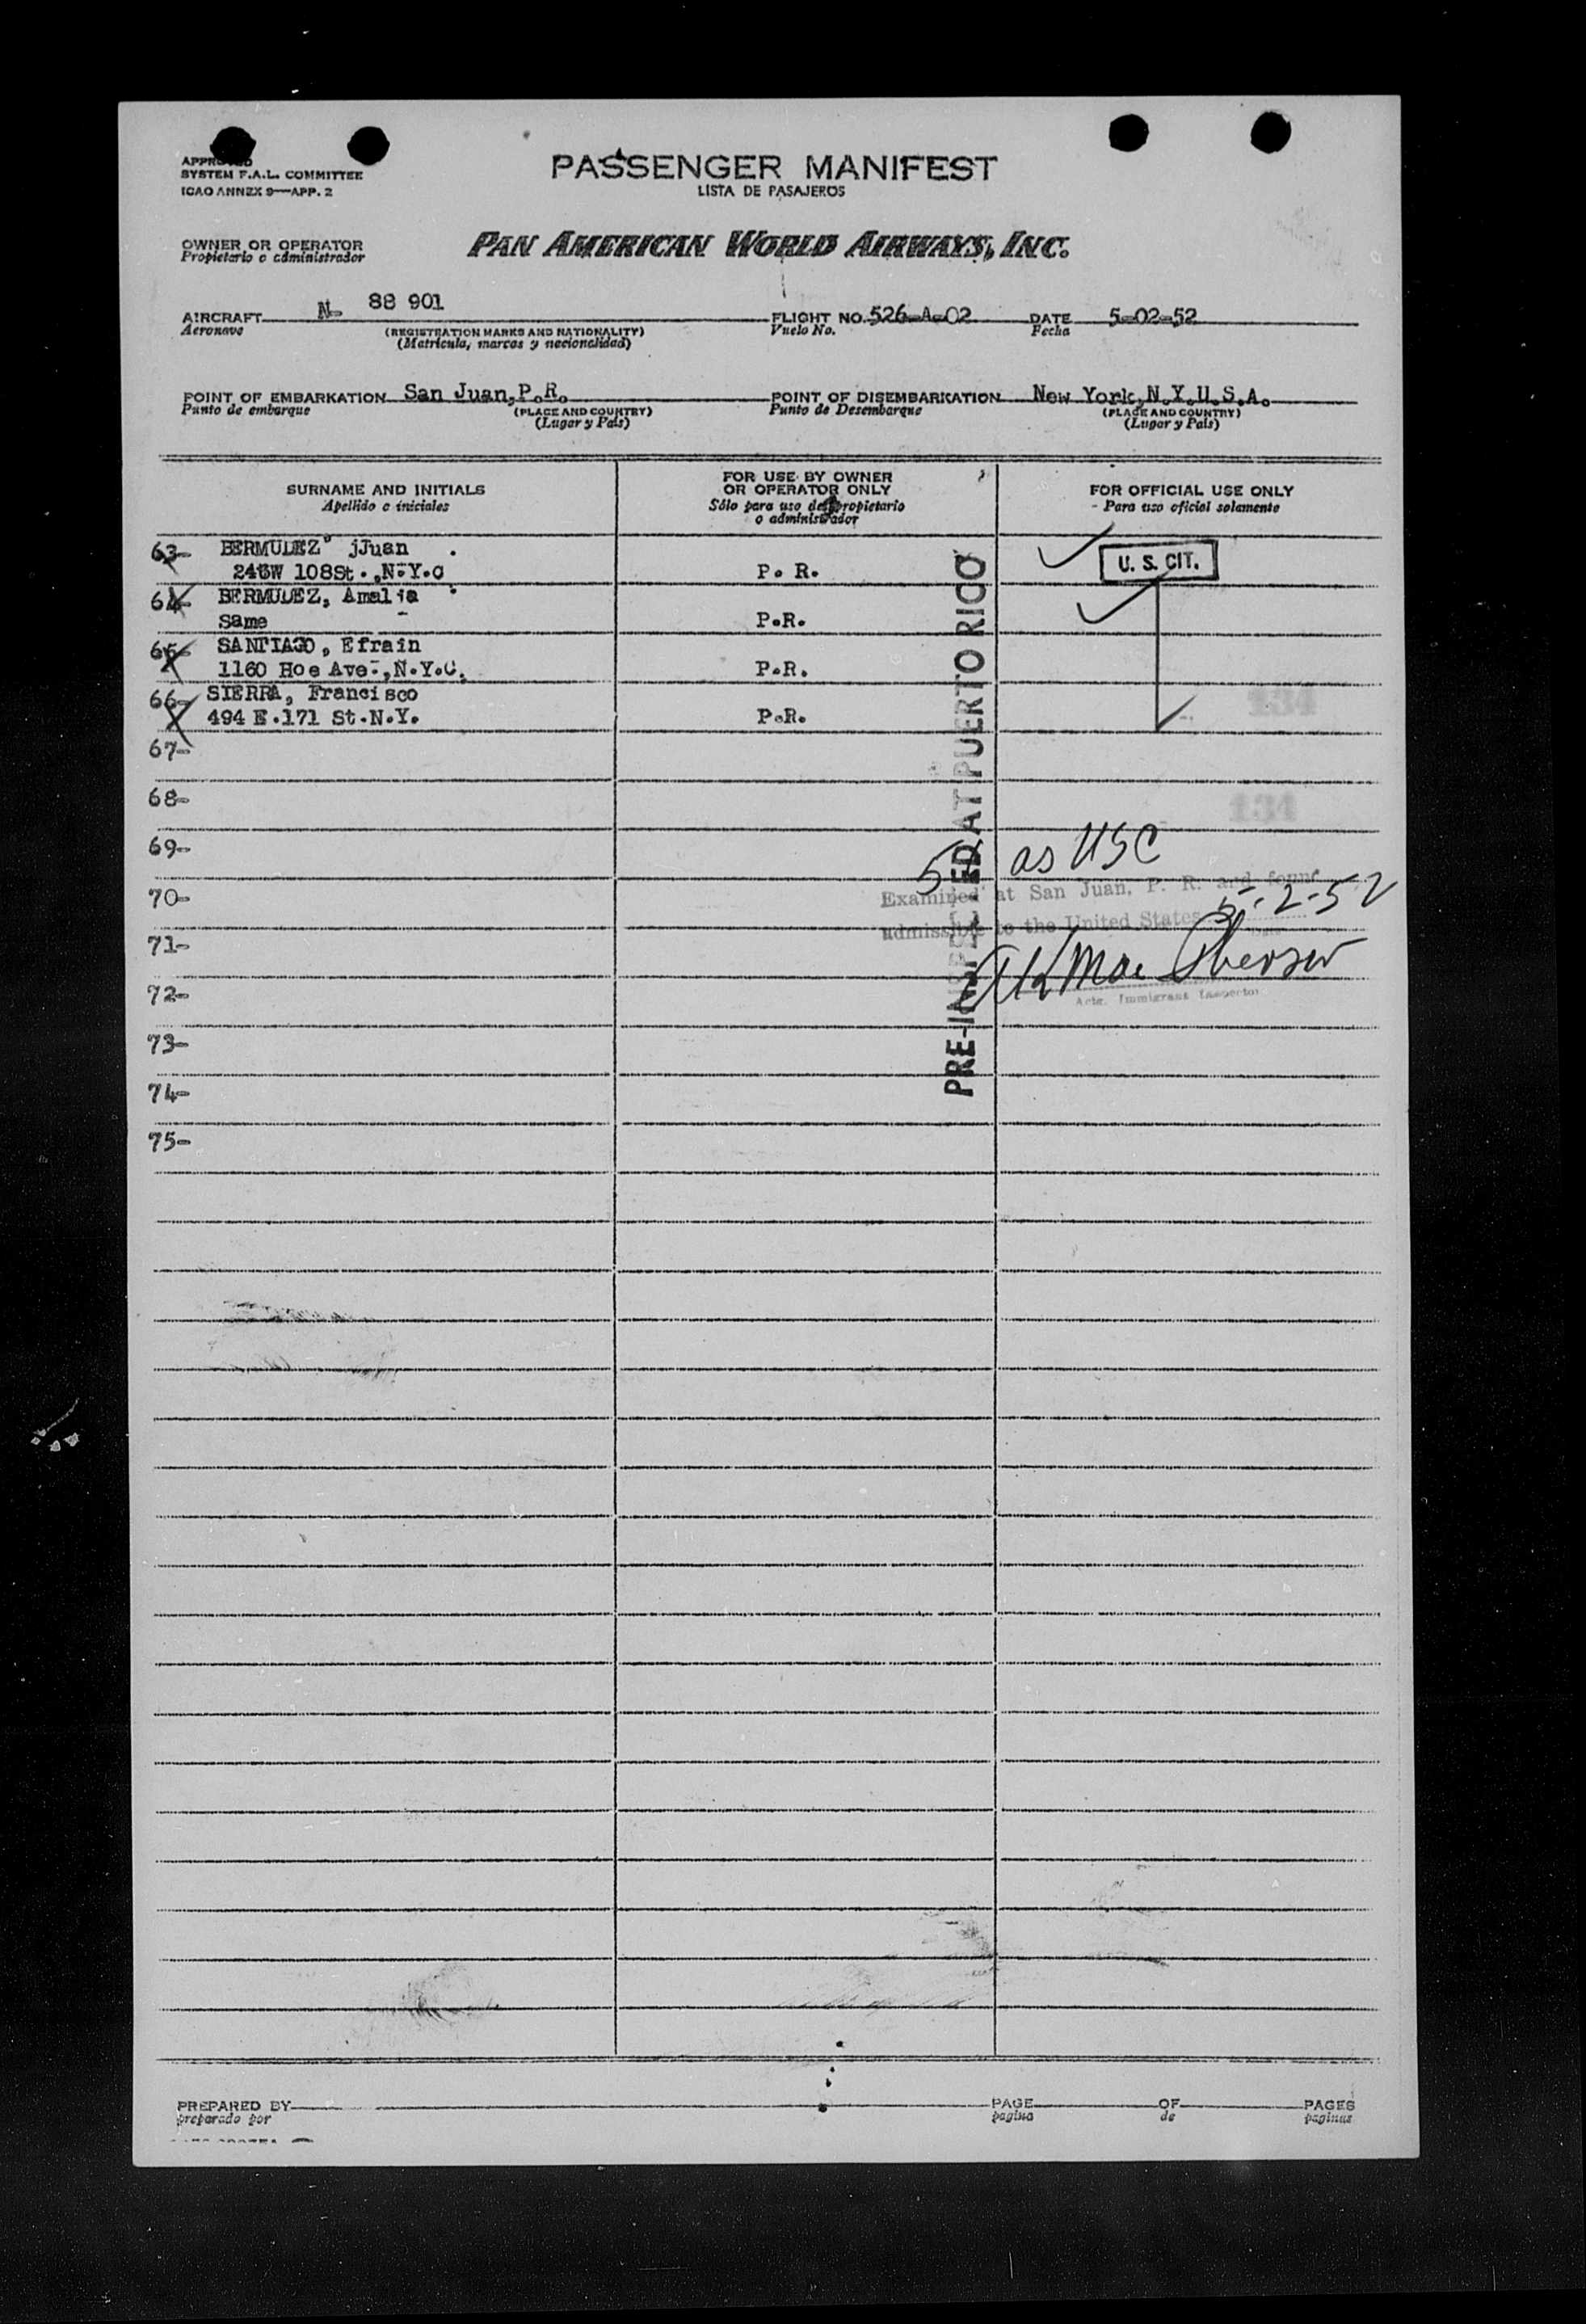 APPROVED
SYSTEM F.A.L. COMMITTEE
ICAO ANNEX 9—APP. 2
PASSENGER MANIFEST
LISTA DE PASAJEROS
OWNER OR OPERATOR
Propietario o administrador
PAN AMERICAN WORLD AIRWAYS, INC.
AIRCRAFT N- 88 901
Aeronave
(REGISTRATION MARKS AND NATIONALITY)
(Matricula, marcas y nacionalidad)
FLIGHT NO. 526-A-02
Vuelo No.
DATE 5-02-52
Fecha
POINT OF EMBARKATION San Juan, P.R.
Punto de embarque
(PLACE AND COUNTRY)
(Lugar y País)
POINT OF DISEMBARKATION New York, N.Y.U.S.A.
Punto de Desembarque
(PLACE AND COUNTRY)
(Lugar y País)
SURNAME AND INITIALS
Apellido e iniciales
FOR USE BY OWNER
OR OPERATOR ONLY
Sólo para uso del propietario
o administrador
FOR OFFICIAL USE ONLY
Para uso oficial solamente
63- BERMUDEZ" jJuan
108St., N.Y.C P. R.
U. S. CIT.
64- BERMUDEZ, Amalia
same P.R.
65- SANTIAGO, Efrain
1160 Hoe Ave-, N.Y.C. P.R.
66- SIERRA, Francisco
494 E.171 St.N.Y. P.R.
134
67-
68-
134
69-
as USC
70-
Examined at San Juan, P. R. and found
5-2-52
admissible to the United States
71-
72-
Actg. Immigrant Inspector
73-
74-
75-
PRE-INSPECTED AT PUERTO RICO
PREPARED BY
preparado por
PAGE OF PAGES
pagina de paginas